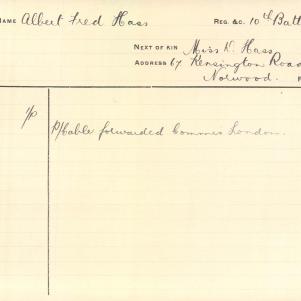 NAME Albert Fred Hass REG. &C. 10th Batt
NEXT OF KIN Miss K. Hass
ADDRESS 67 Kensington Road
Norwood.
P/Cable forwarded Commes London.